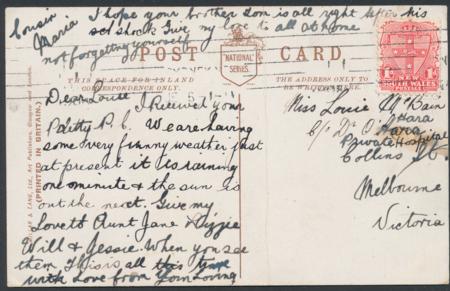 I hope your brother Dom is all right after his
Give my love to all at home
not forgetting yourself
Cousin
Maria
POST CARD
NATIONAL
SERIES.
THIS SPACE FOR INLAND
CORRESPONDENCE ONLY.
THE ADDRESS ONLY TO
BE WRITTEN HERE.
(PRINTED IN BRITAIN.)
Dear Louie I received your
Pretty P.C. We are having
some very funny weather just
at present it is raining
one minute & the sun is
out the next. Give my
love to Aunt Jane & Lizzie
Will & Jessie. When you see
them This is all this time
with Love from Your Loving
Miss Louie McBain
c/o Dr O'Hara
Private Hospital
Collins St
Melbourne
Victoria
WALES
POSTAGE